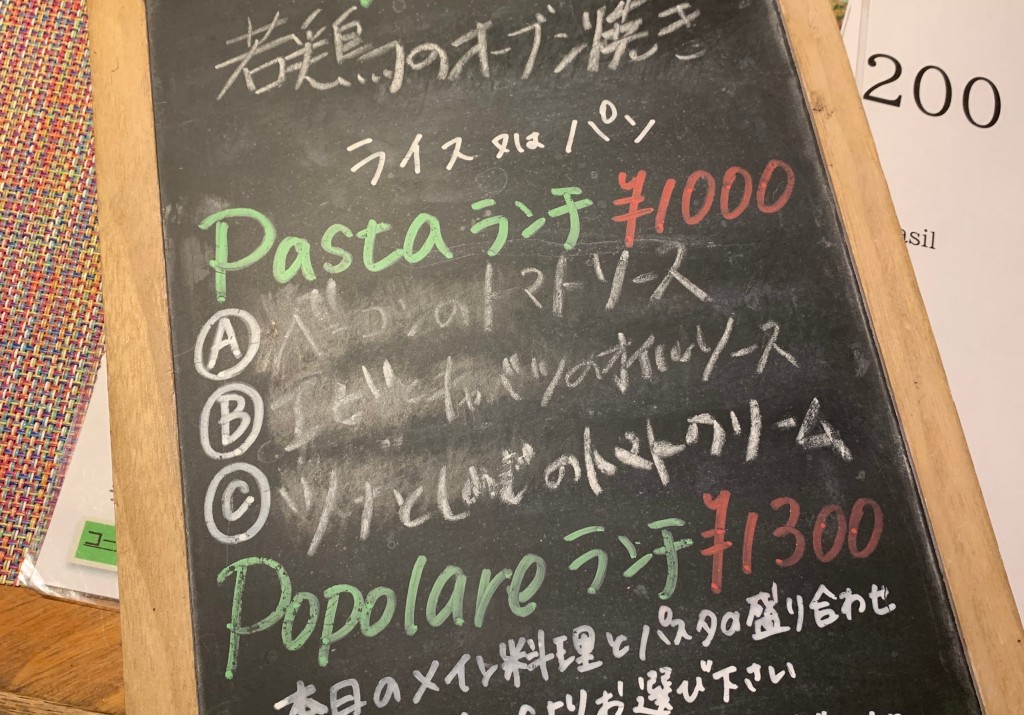 若鶏のオーブン焼き
ライス又はパン
Pastaランチ ¥1000
Ⓐ ベーコンのトマトソース
Ⓑ エビとキャベツのオイルソース
Ⓒ ツナとしめじのトマトクリーム
Popolareランチ ¥1300
本日のメイン料理とパスタの盛り合わせ
よりお選び下さい
200
asil
コー